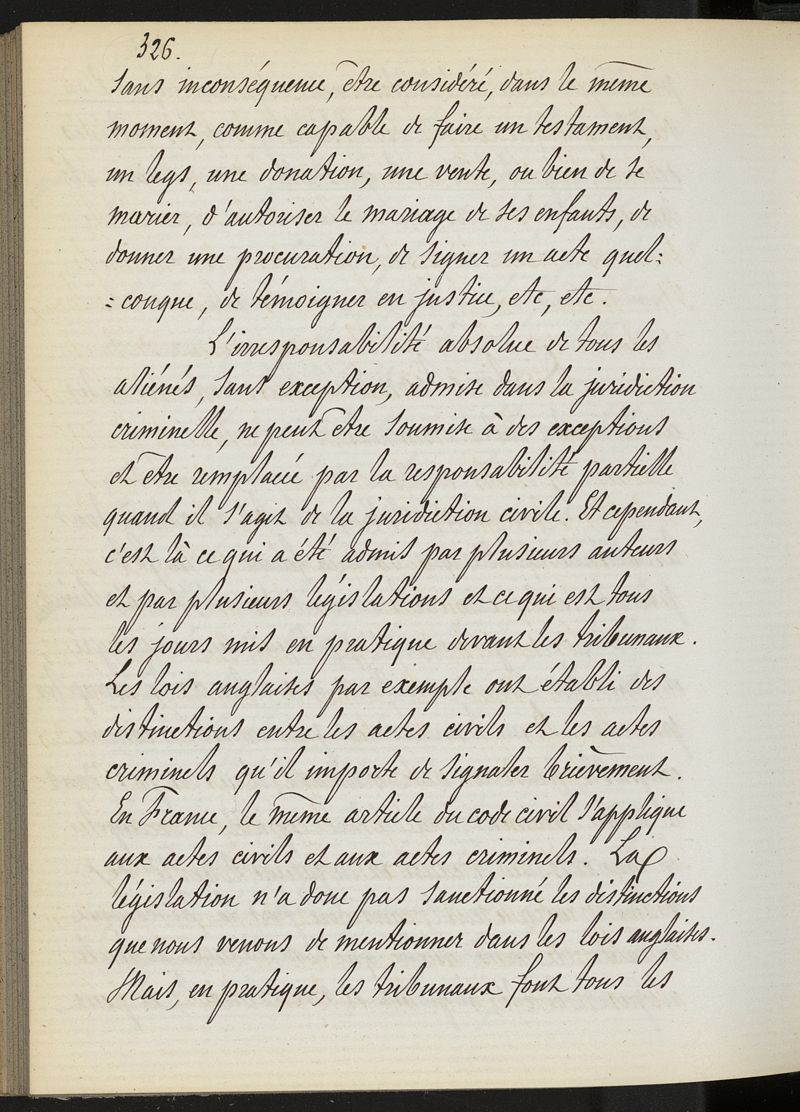 326.
sans inconséquence, être considéré, dans le même
moment, comme capable de faire un testament,
un legs, une donation, une vente, ou bien de se
marier, d'autoriser le mariage de ses enfants, de
donner une procuration, de signer un acte quel=
=conque, de témoigner en justice, etc, etc.
L'irresponsabilité absolue de tous les
aliénés, sans exception, admise dans la juridiction
criminelle, ne peut être soumise à des exceptions
et être remplacée par la responsabilité partielle
quand il s'agit de la juridiction civile. Et cependant,
c'est là ce qui a été admis par plusieurs auteurs
et par plusieurs législations et ce qui est tous
les jours mis en pratique devant les tribunaux.
Les lois anglaises par exemple ont établi des
distinctions entre les actes civils et les actes
criminels qu'il importe de signaler brièvement.
En France, le même article du code civil s'applique
aux actes civils et aux actes criminels. La
législation n'a donc pas sanctionné les distinctions
que nous venons de mentionner dans les lois anglaises.
Mais, en pratique, les tribunaux font tous les